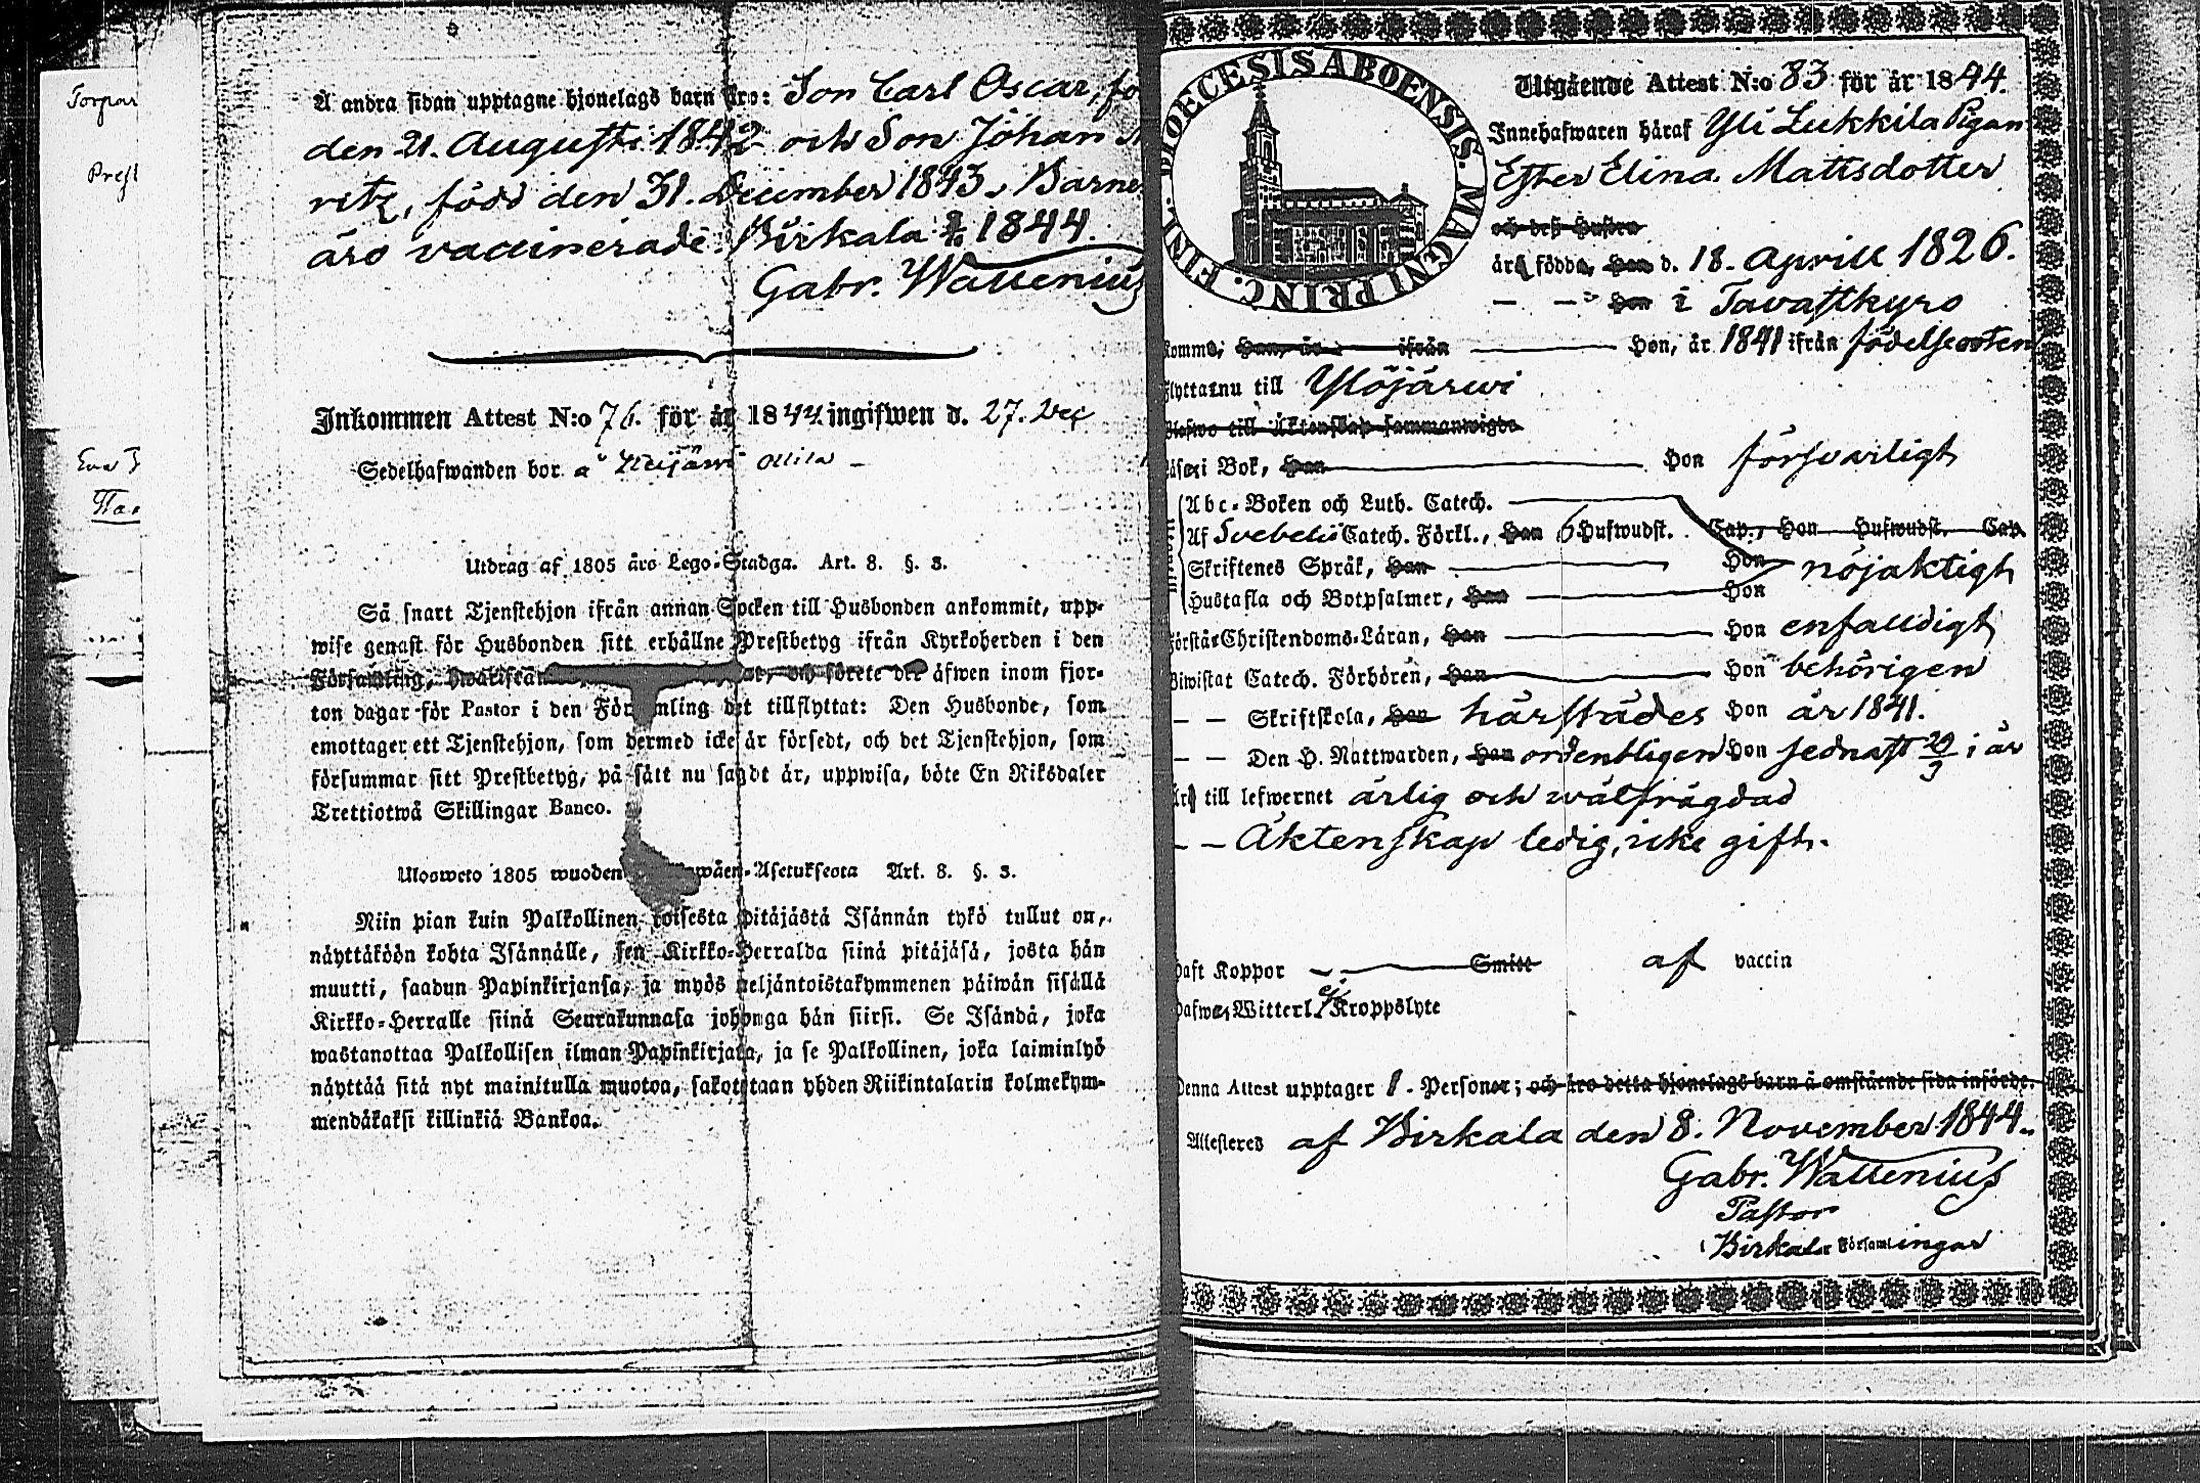 Torpar
Prest
Eva
Å andra sidan upptagne hjonelags barn äro: Son Carl Oscar, fö
den 21. Augusti 1842 och Son Johan
ritz, född den 31. December 1843. Barne
äro vaccinerade. Birkala 1844.
Gabr. Wallenius
Inkommen Attest N:o 76. för år 1844. ingifwen d. 27. Dec
Sedelhafwanden bor å
Utdrag af 1805 års Lego-Stadga. Art. 8. §. 3.
Så snart Tjenstehjon ifrån annan Socken till Husbonden ankommit, upp-
wise genast för Husbonden sitt erhållne Prestbetyg ifrån Kyrkoherden i den
Församling, hwarifrån och förete det äfwen inom fjor-
ton dagar för Pastor i den Församling det tillflyttat: Den Husbonde, som
emottager ett Tjenstehjon, som dermed icke är försedt, och det Tjenstehjon, som
försummar sitt Prestbetyg, på sätt nu sagdt är, uppwisa, böte En Riksdaler
Trettiotwå Skillingar Banco.
Ulosweto 1805 wuoden wäen-Asetuksesta Art. 8. §. 3.
Niin pian kuin Palkollinen toisesta pitäjästä Isännän tykö tullut on,
näyttäköön kohta Isännälle, sen Kirkko-Herralda siinä pitäjäsä, josta hän
muutti, saadun Papinkirjansa, ja myös neljäntoistakymmenen päiwän sisällä
Kirkko-Herralle siinä Seurakunnasa johonga hän siirsi. Se Isändä, joka
wastanottaa Palkollisen ilman Papinkirjata, ja se Palkollinen, joka laiminlyö
näyttää sitä nyt mainitulla muotoa, sakotetaan yhden Riikintalarin kolmekym-
mendäkaksi killinkiä Bankoa.
DIOECESIS ABOENSIS. MAGNI PRINC. FINL.
Utgående Attest N:o 83 för år 1844.
Innehafwaren häraf Yli Lukkila Pigan
Esther Elina Mattsdotter
och dess Hustru
äro födda, han d. 18. Aprill 1826.
— — hon i Tavastkyro
komme, Han, år ifrån Hon, år 1841 ifrån födelseorten
flyttar nu till Ylöjärwi
Blefwo till Äktenskap sammanwigde
Läser i Bok, Han Hon försvarligt
Abc-Boken och Luth. Catech.
Af Svebelii Catech. Förkl., Han 6 Hufwudst. Cap., Hon Hufwudst. Cap.
Skriftenes Språk, Han Hon nöjaktigt
Hustafla och Botpsalmer, Han Hon
Förstår Christendoms-Läran, Han Hon enfaldigt
Biwistat Catech. Förhören, Han Hon behörigen
— — Skriftskola, Han härstädes Hon år 1841.
— — Den H. Nattwarden, Han ordentligen Hon sednast 20/3 i år
Är till lefwernet ärlig och wälfrägdad
— — Äktenskap ledig, icke gift.
haft Koppor Smitt af vaccin
hafwa Witterl. ej Kroppslyte
Denna Attest upptager 1. Personer; och äro detta hjonelags barn å omstående sida införde.
Attesteras af Birkala den 8. November 1844.
Gabr. Wallenius
Pastor
i Birkala Församlingar